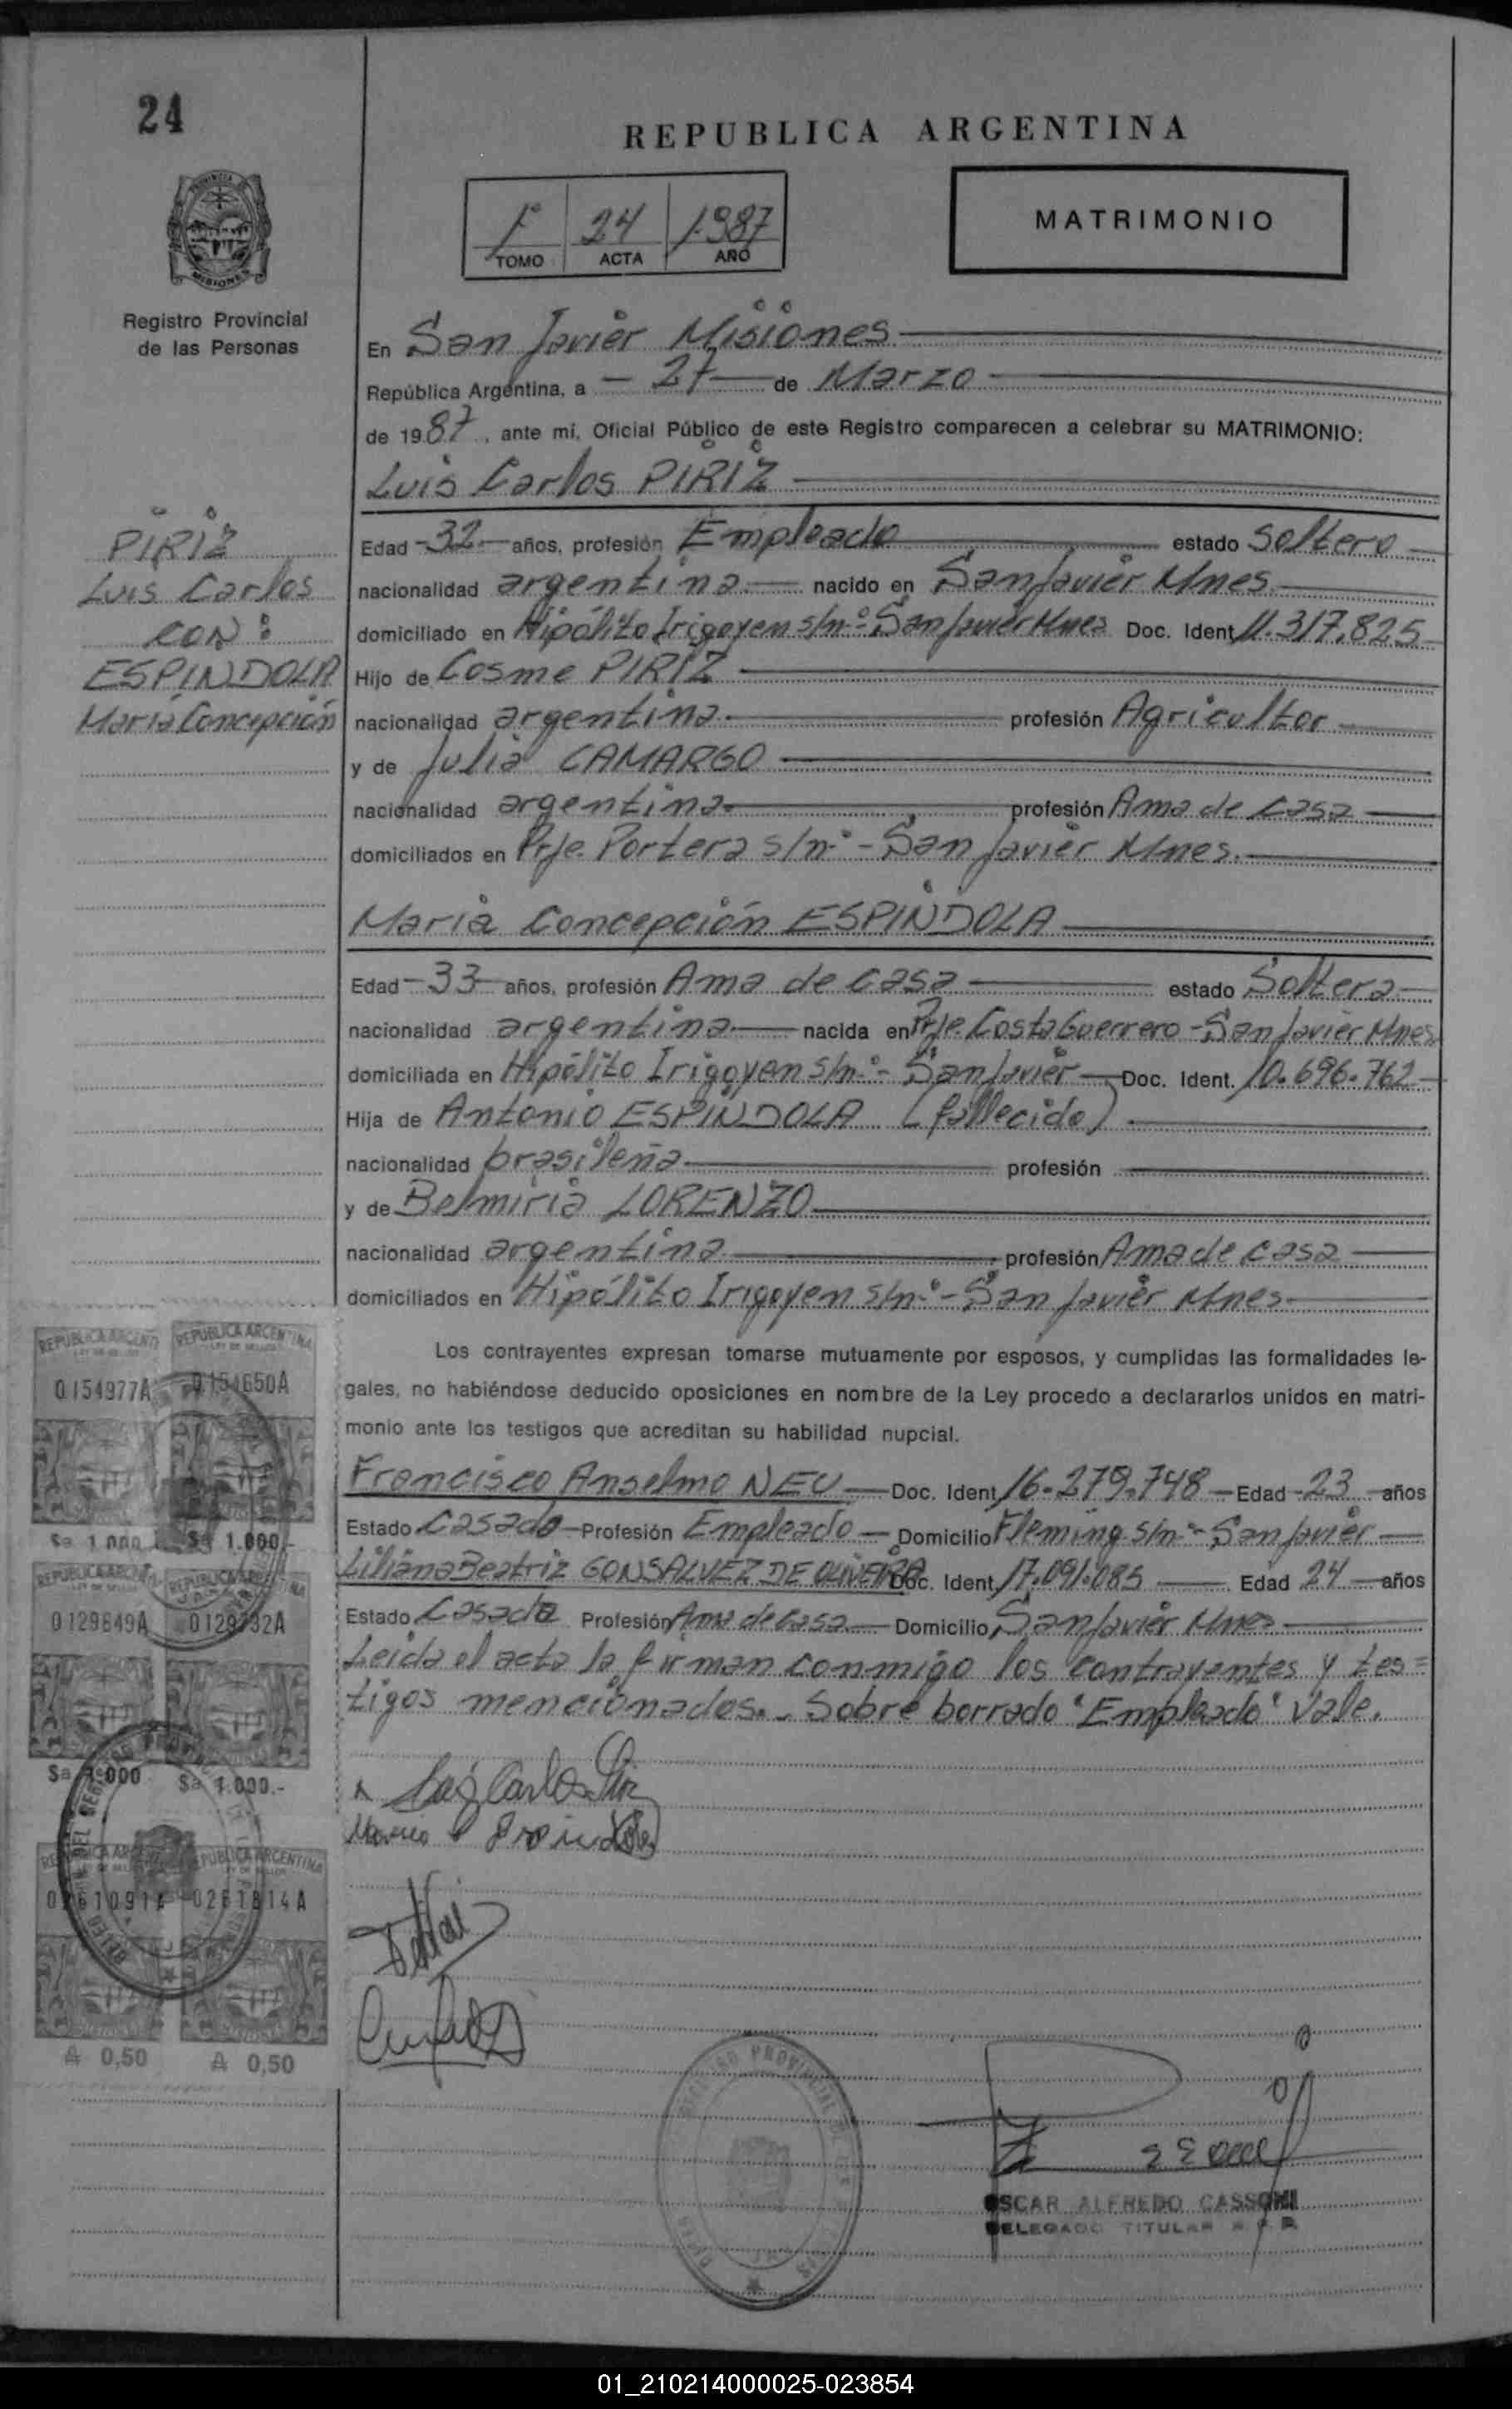 24
REPUBLICA ARGENTINA
1º 24 1987
TOMO ACTA AÑO
MATRIMONIO
PROVINCIA DE
MISIONES
Registro Provincial
de las Personas
En San Javier Misiones
República Argentina, a - 27 - de Marzo
de 1987, ante mí, Oficial Público de este Registro comparecen a celebrar su MATRIMONIO:
Luis Carlos PIRIZ
PIRIZ
Luis Carlos
CON:
ESPINDOLA
María Concepción
Edad - 32 - años, profesión Empleado estado Soltero
nacionalidad argentina nacido en San Javier Mnes.
domiciliado en Hipólito Irigoyen s/nº - San Javier Mnes Doc. Ident. 11.317.825
Hijo de Cosme PIRIZ
nacionalidad argentina. profesión Agricultor
y de Julia CAMARGO
nacionalidad argentina. profesión Ama de casa
domiciliados en Prje. Portera s/nº - San Javier Mnes.
María Concepción ESPINDOLA
Edad - 33 - años, profesión Ama de casa estado Soltera
nacionalidad argentina nacida en Prje. Costa Guerrero - San Javier Mnes
domiciliada en Hipólito Irigoyen s/nº - San Javier Doc. Ident. 10.696.762
Hija de Antonio ESPINDOLA (fallecido)
nacionalidad brasileña profesión
y de Belmiria LORENZO
nacionalidad argentina profesión Ama de casa
domiciliados en Hipólito Irigoyen s/nº - San Javier Mnes
Los contrayentes expresan tomarse mutuamente por esposos, y cumplidas las formalidades le-
gales, no habiéndose deducido oposiciones en nombre de la Ley procedo a declararlos unidos en matri-
monio ante los testigos que acreditan su habilidad nupcial.
Francisco Anselmo NEU Doc. Ident. 16.279.748 - Edad - 23 - años
Estado Casado - Profesión Empleado - Domicilio Fleming s/nº - San Javier
Liliana Beatriz GONSALVEZ DE OLIVEIRA Doc. Ident. 17.091.085 Edad 24 años
Estado Casada Profesión Ama de Casa Domicilio San Javier Mnes
Leída el acta la firman conmigo los contrayentes y tes=
tigos mencionados.- Sobre borrado "Empleado" Vale.
REPUBLICA ARGENTINA
REPUBLICA ARGENTINA
LEY DE SELLOS
0154977A
0154650A
$a 1.000
$a 1.000.-
REPUBLICA ARGENTINA
0129849A
$a 1.000
$a 1.000.-
REPUBLICA ARGENTINA
A 0,50
A 0,50
Luis Carlos Piriz
OSCAR ALFREDO CASSONI
DELEGADO TITULAR R.P.P.
01_210214000025-023854